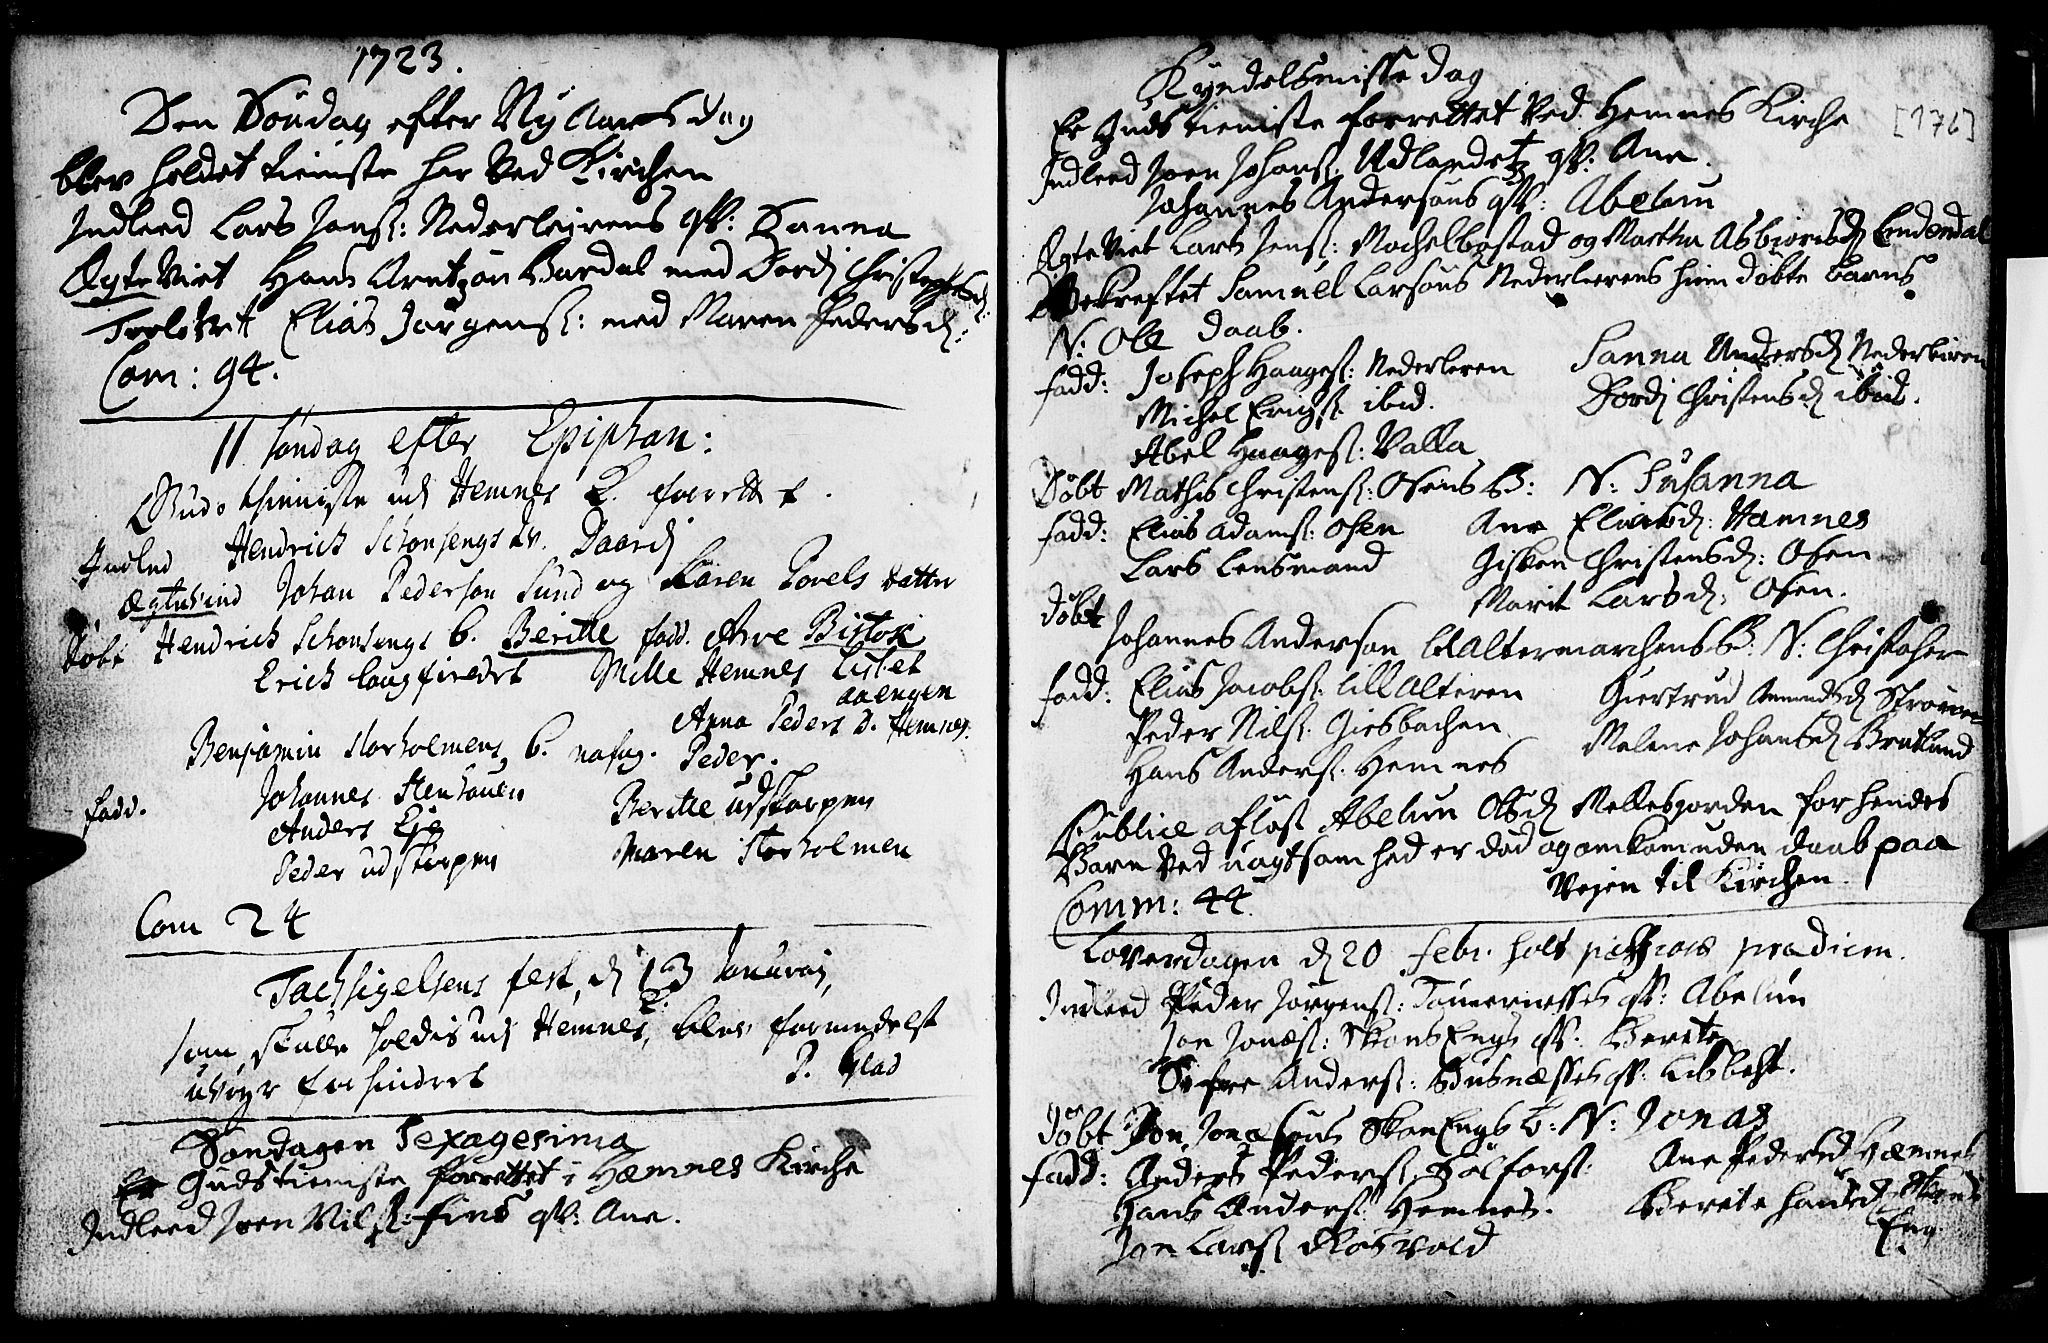 1723.
Den Söndag efter Ny Aars dag
blev holdet tieniste her ved Kirchen
Indleed Lars Jonsß: Nederleirens qv: Sanna
Ægte Viet Hans Arntzön Bardal med Dordj Christophersd:
Trolovet Elias Jörgensß: med Maren Pedersd:
Com: 94.
II söndag efter Epiphan:
Guds thieniste udj Hemnes K. forrettet.
Indled Hendrick Schonsengs qv. Daardj
Ægtevied Johan Pederson Sund og Karen Povels datter
döbt Hendrick Schonsengs b. Beritte fadd. Arve Bistok
Erick Langfiordet Mille Hemnes Lisbet
aaengen
Anna Peders D. Hemnes.
Benjamin Storholmens b. nafng. Peder.
fadd. Johannes Stenhauen Beritte udskarpen
Anders Eje Maren Storholmen
Peder udskarpen
Com 24
Tachsigelsens fest, d 13 Januarij,
som skulle holdis udj Hemnes K. blev formedelst
uveyr forhindret P. Glad
Söndagen Sexagesima
Er Gudstieniste forrettet i Hæmnes Kirche
Indleed Joen Nilsß: fins qv: Ane.
Kyndelsmisse dag
Er Guds tieniste forrettet ved Hemnes Kirche [176]
Indleed Joen Johansß: Udlandets qv: Ane.
Johannes Andersöns qv: Abelun
Ægte Viet Lars Jensß: Mochelbostad og Martha Asbiörnsd Lendendal
Bekreftet Samuel Larsöns Nederleerens hiem döbte Barns
N: Ole Daab.
fadd: Joseph Haagesß: Nederleren Sanna Andersd Nederleiren
Michel Erichsß. ibid. Dordj Christensd ibid.
Abel Haagesß: Valla
Döbt Mathis Christensß: Osens B: N: Susanna
fadd: Elias Adamsß: Osen Ane Eliæd: Hamnes
Lars Lensmand Gisken Christensd: Osen
Marit Larsd: Osen.
Döbt
Johannes Anderson Altermarchens B: N: Christopher
fadd: Elias Jacobsß: Lill Alteren Giertrud Amundsd
Peder Nilsß. Giesbachen Malene Johansd Bratland
Hans Andersß: Hemnes
Publice aflöst Abelun Olsd Mellesjorden for hendes
Barn ved uagtsomhed er död og omkom uden Daab paa
Vejen til Kirchen.
Comm: 44.
Löverdagen d 20 febr. holt prædicen.
Indleed Peder Jörgensß: qv: Abelun
Jon Jonæsß: Skons Engs qv. Berete
Anders: Busnæsses qv: Lisbeht.
Döbt Jon Jonæsöns Skon Engs B: N: Jonas
fadd: Anders Pedersß: Ane Pedersd Hæmnes
Hans Andersß. Hemnes. Berete Hansd Skons
Jon Larsß Eng.